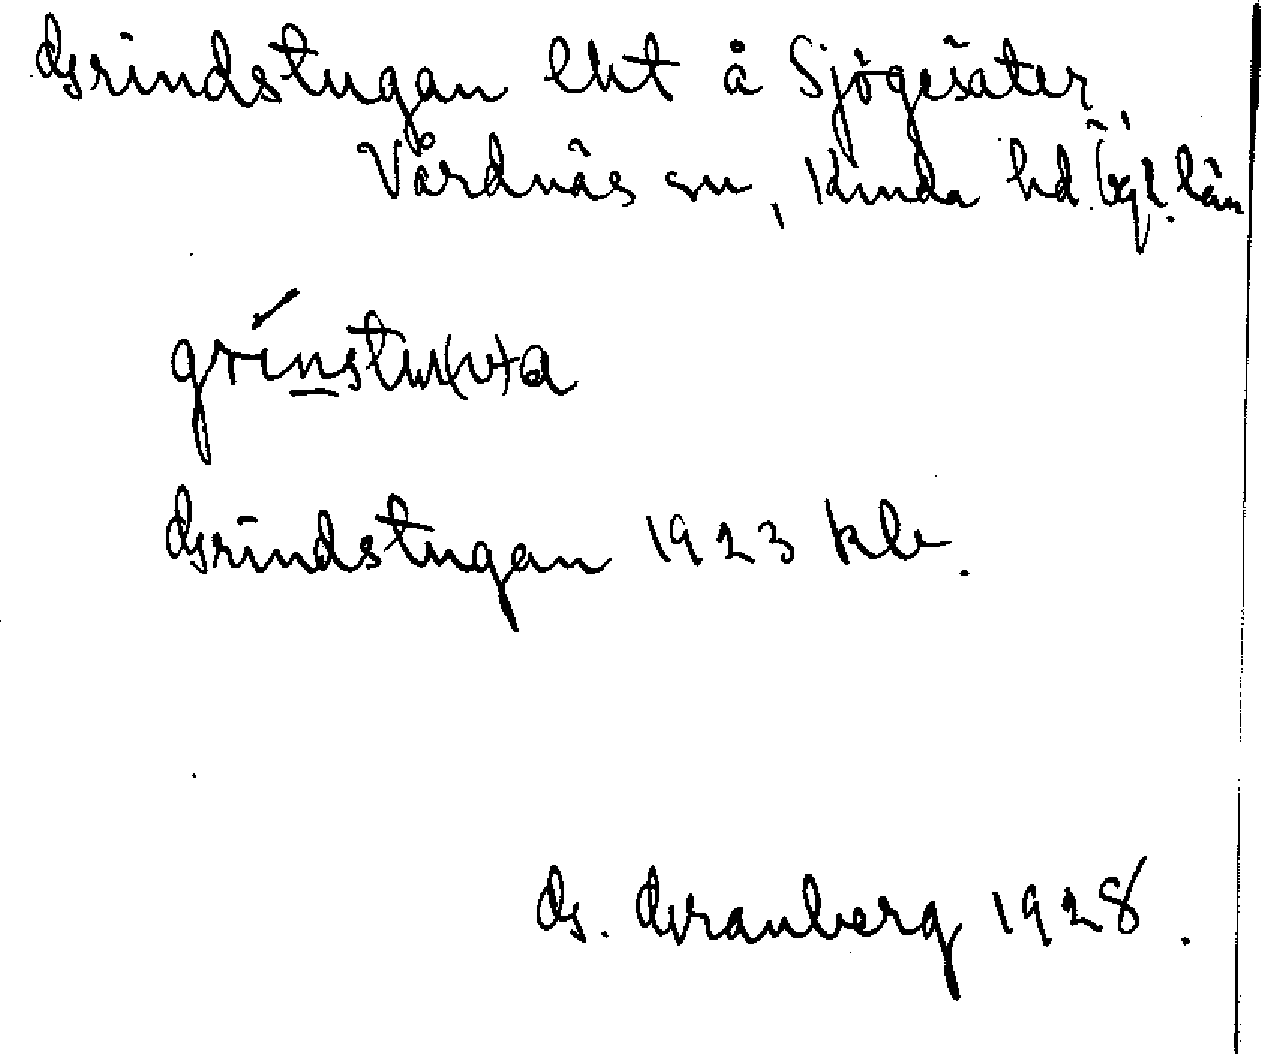 Grindstugan lht å Sjögesäter,
Vårdnäs sn, Kinda hd Ögl. län
grínstu(v)a
Grindstugan 1923 kbr.
G. Granberg 1928.